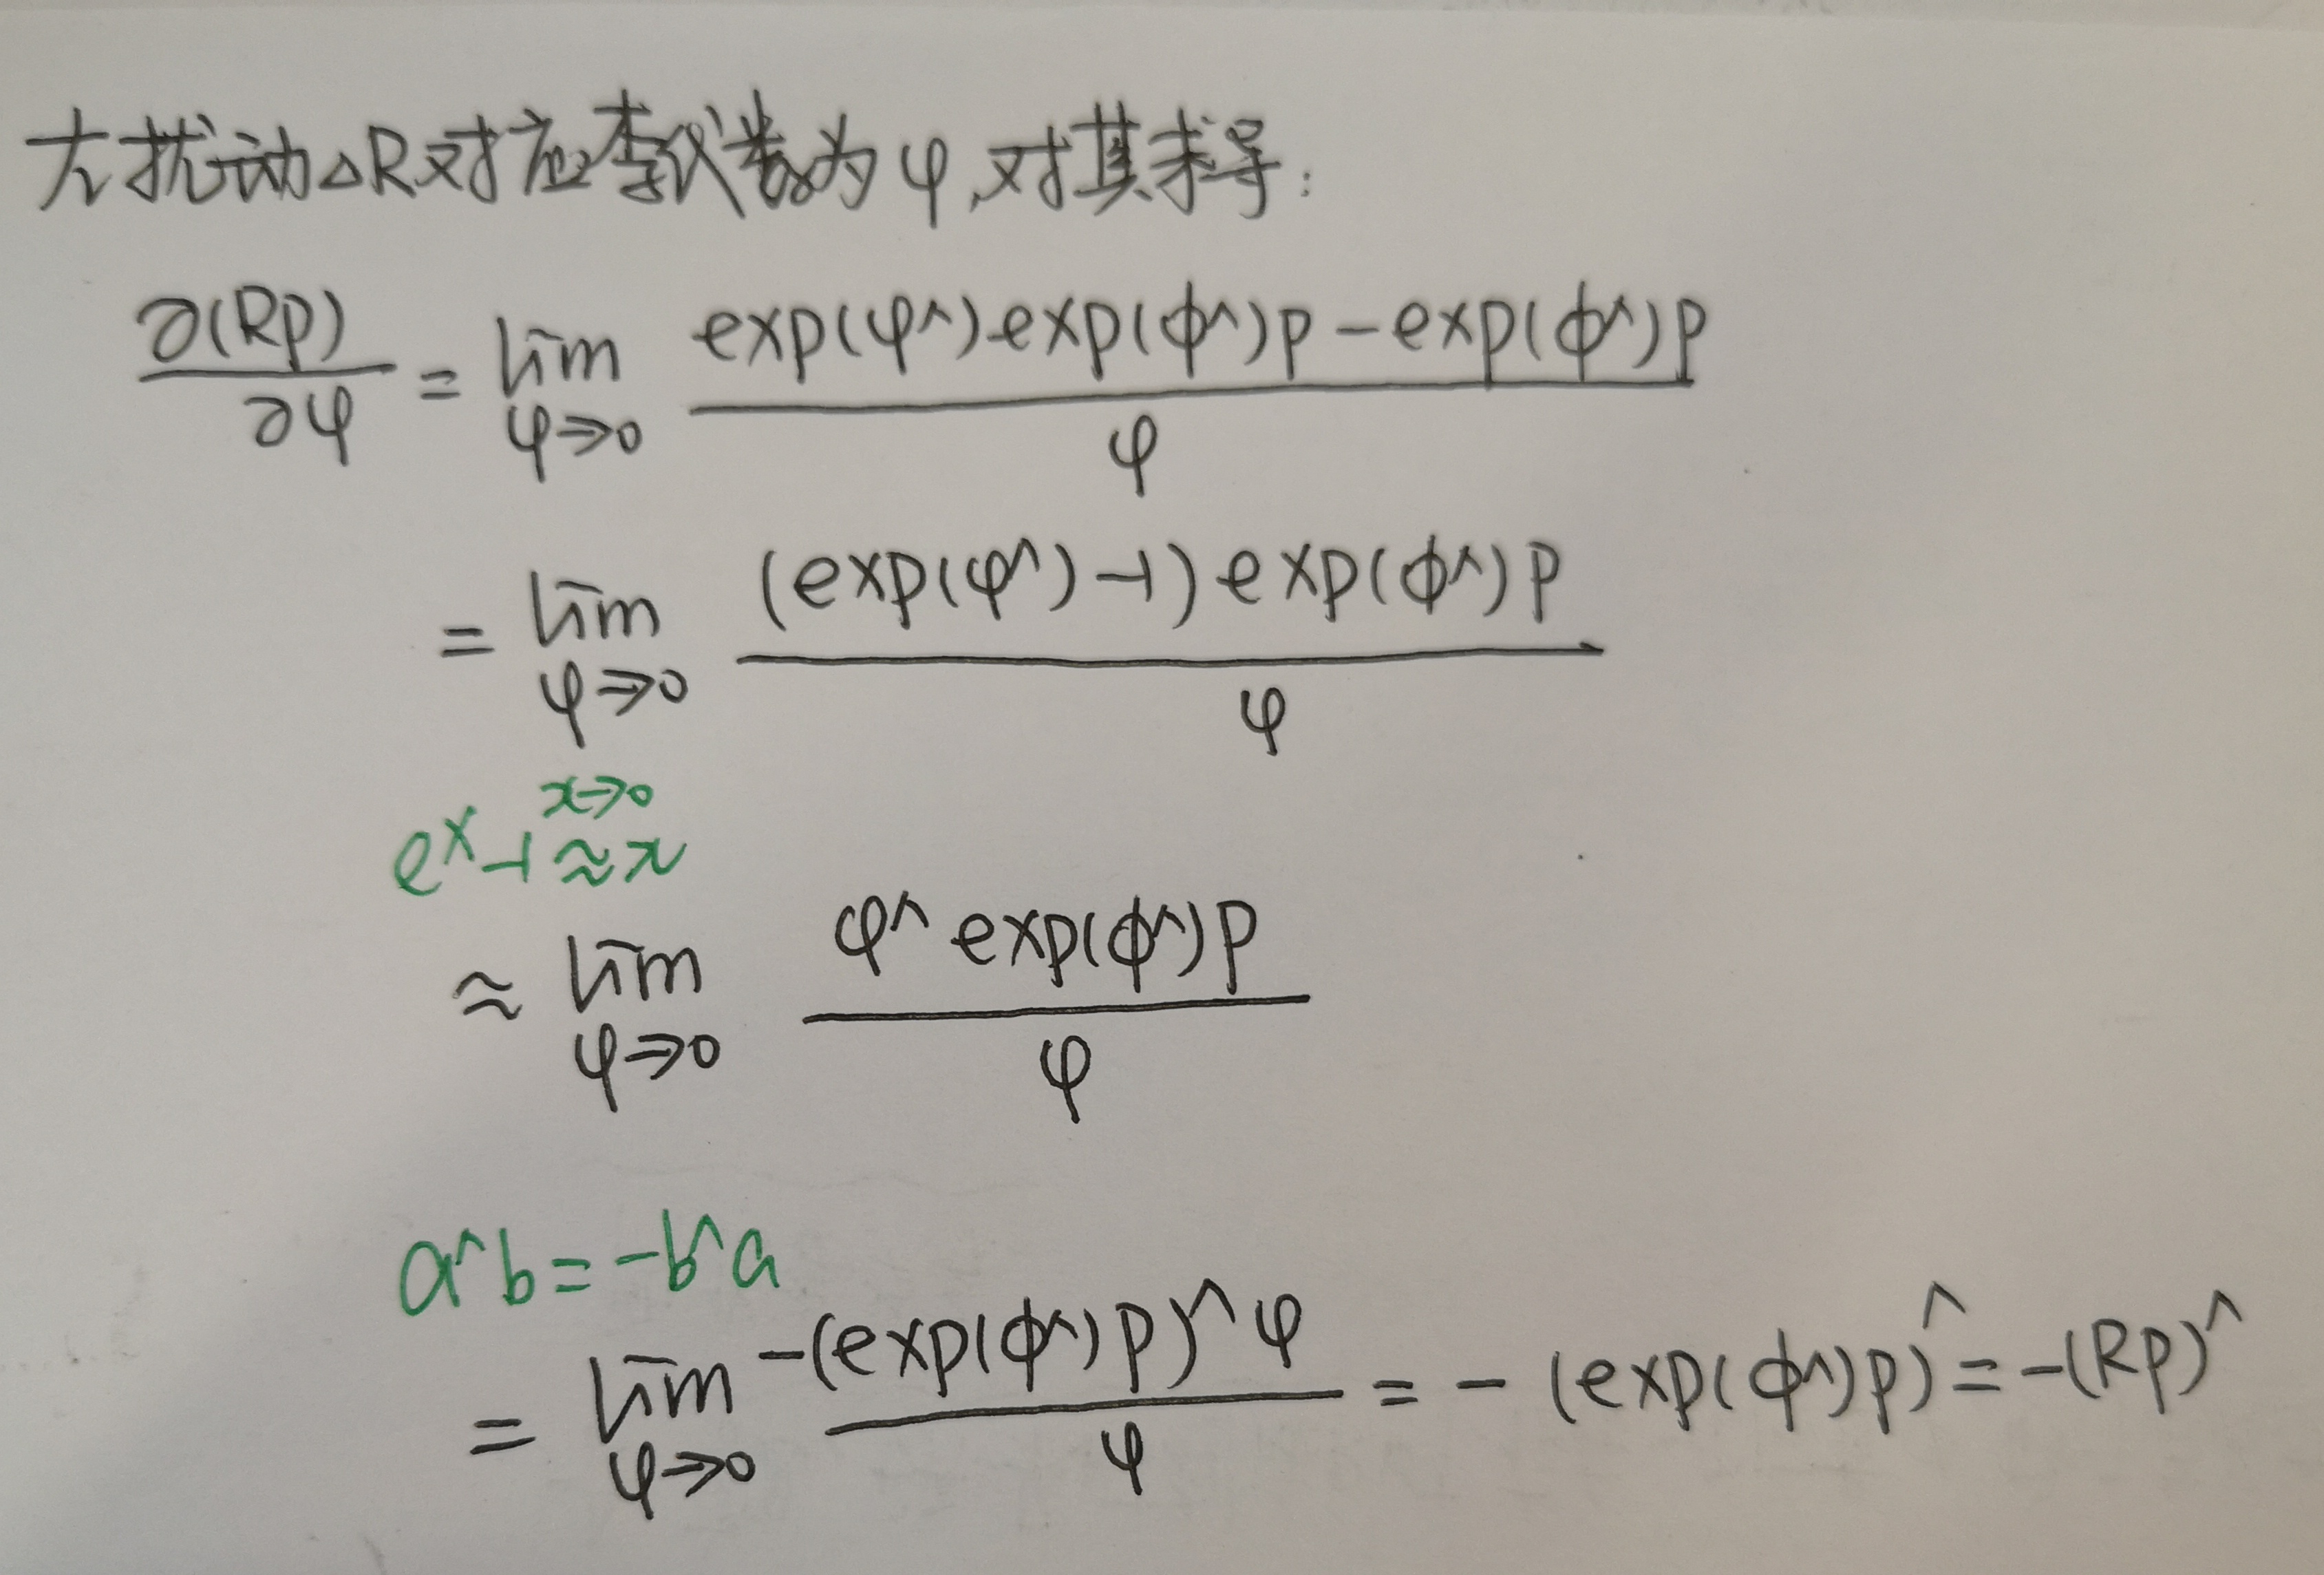 左扰动△R对应李代数为φ,对其求导:
∂(Rp)/∂φ = lim φ→0 (exp(φ^)exp(ϕ^)p - exp(ϕ^)p)/φ
= lim φ→0 (exp(φ^)-1)exp(ϕ^)p/φ
e^x-1 ≈ x x→0
≈ lim φ→0 φ^exp(ϕ^)p/φ
a^b = -b^a
= lim φ→0 -(exp(ϕ^)p)^φ/φ = -(exp(ϕ^)p)^ = -(Rp)^